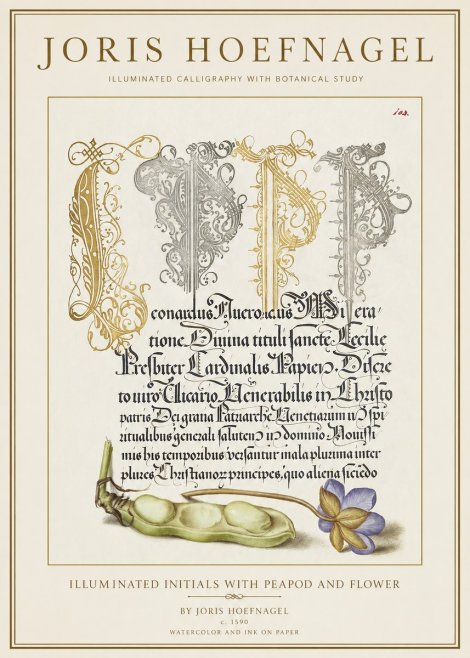 JORIS HOEFNAGEL
ILLUMINATED CALLIGRAPHY WITH BOTANICAL STUDY
103.
L P P P
eonardus Miseratione
tione. Diuina tituli sancte Cecilie
Presbiter Cardinalis Papien. Discre
to uiro Vicario Venerabilis in Christo
patris Dei gratia Patriarche Venetiarum in spi
ritualibus generali salutem in domino. Nouissi
mis his temporibus versantur mala plurima inter
plures Christianor principes, quo aliena
ILLUMINATED INITIALS WITH PEAPOD AND FLOWER
BY JORIS HOEFNAGEL
c. 1590
WATERCOLOR AND INK ON PAPER